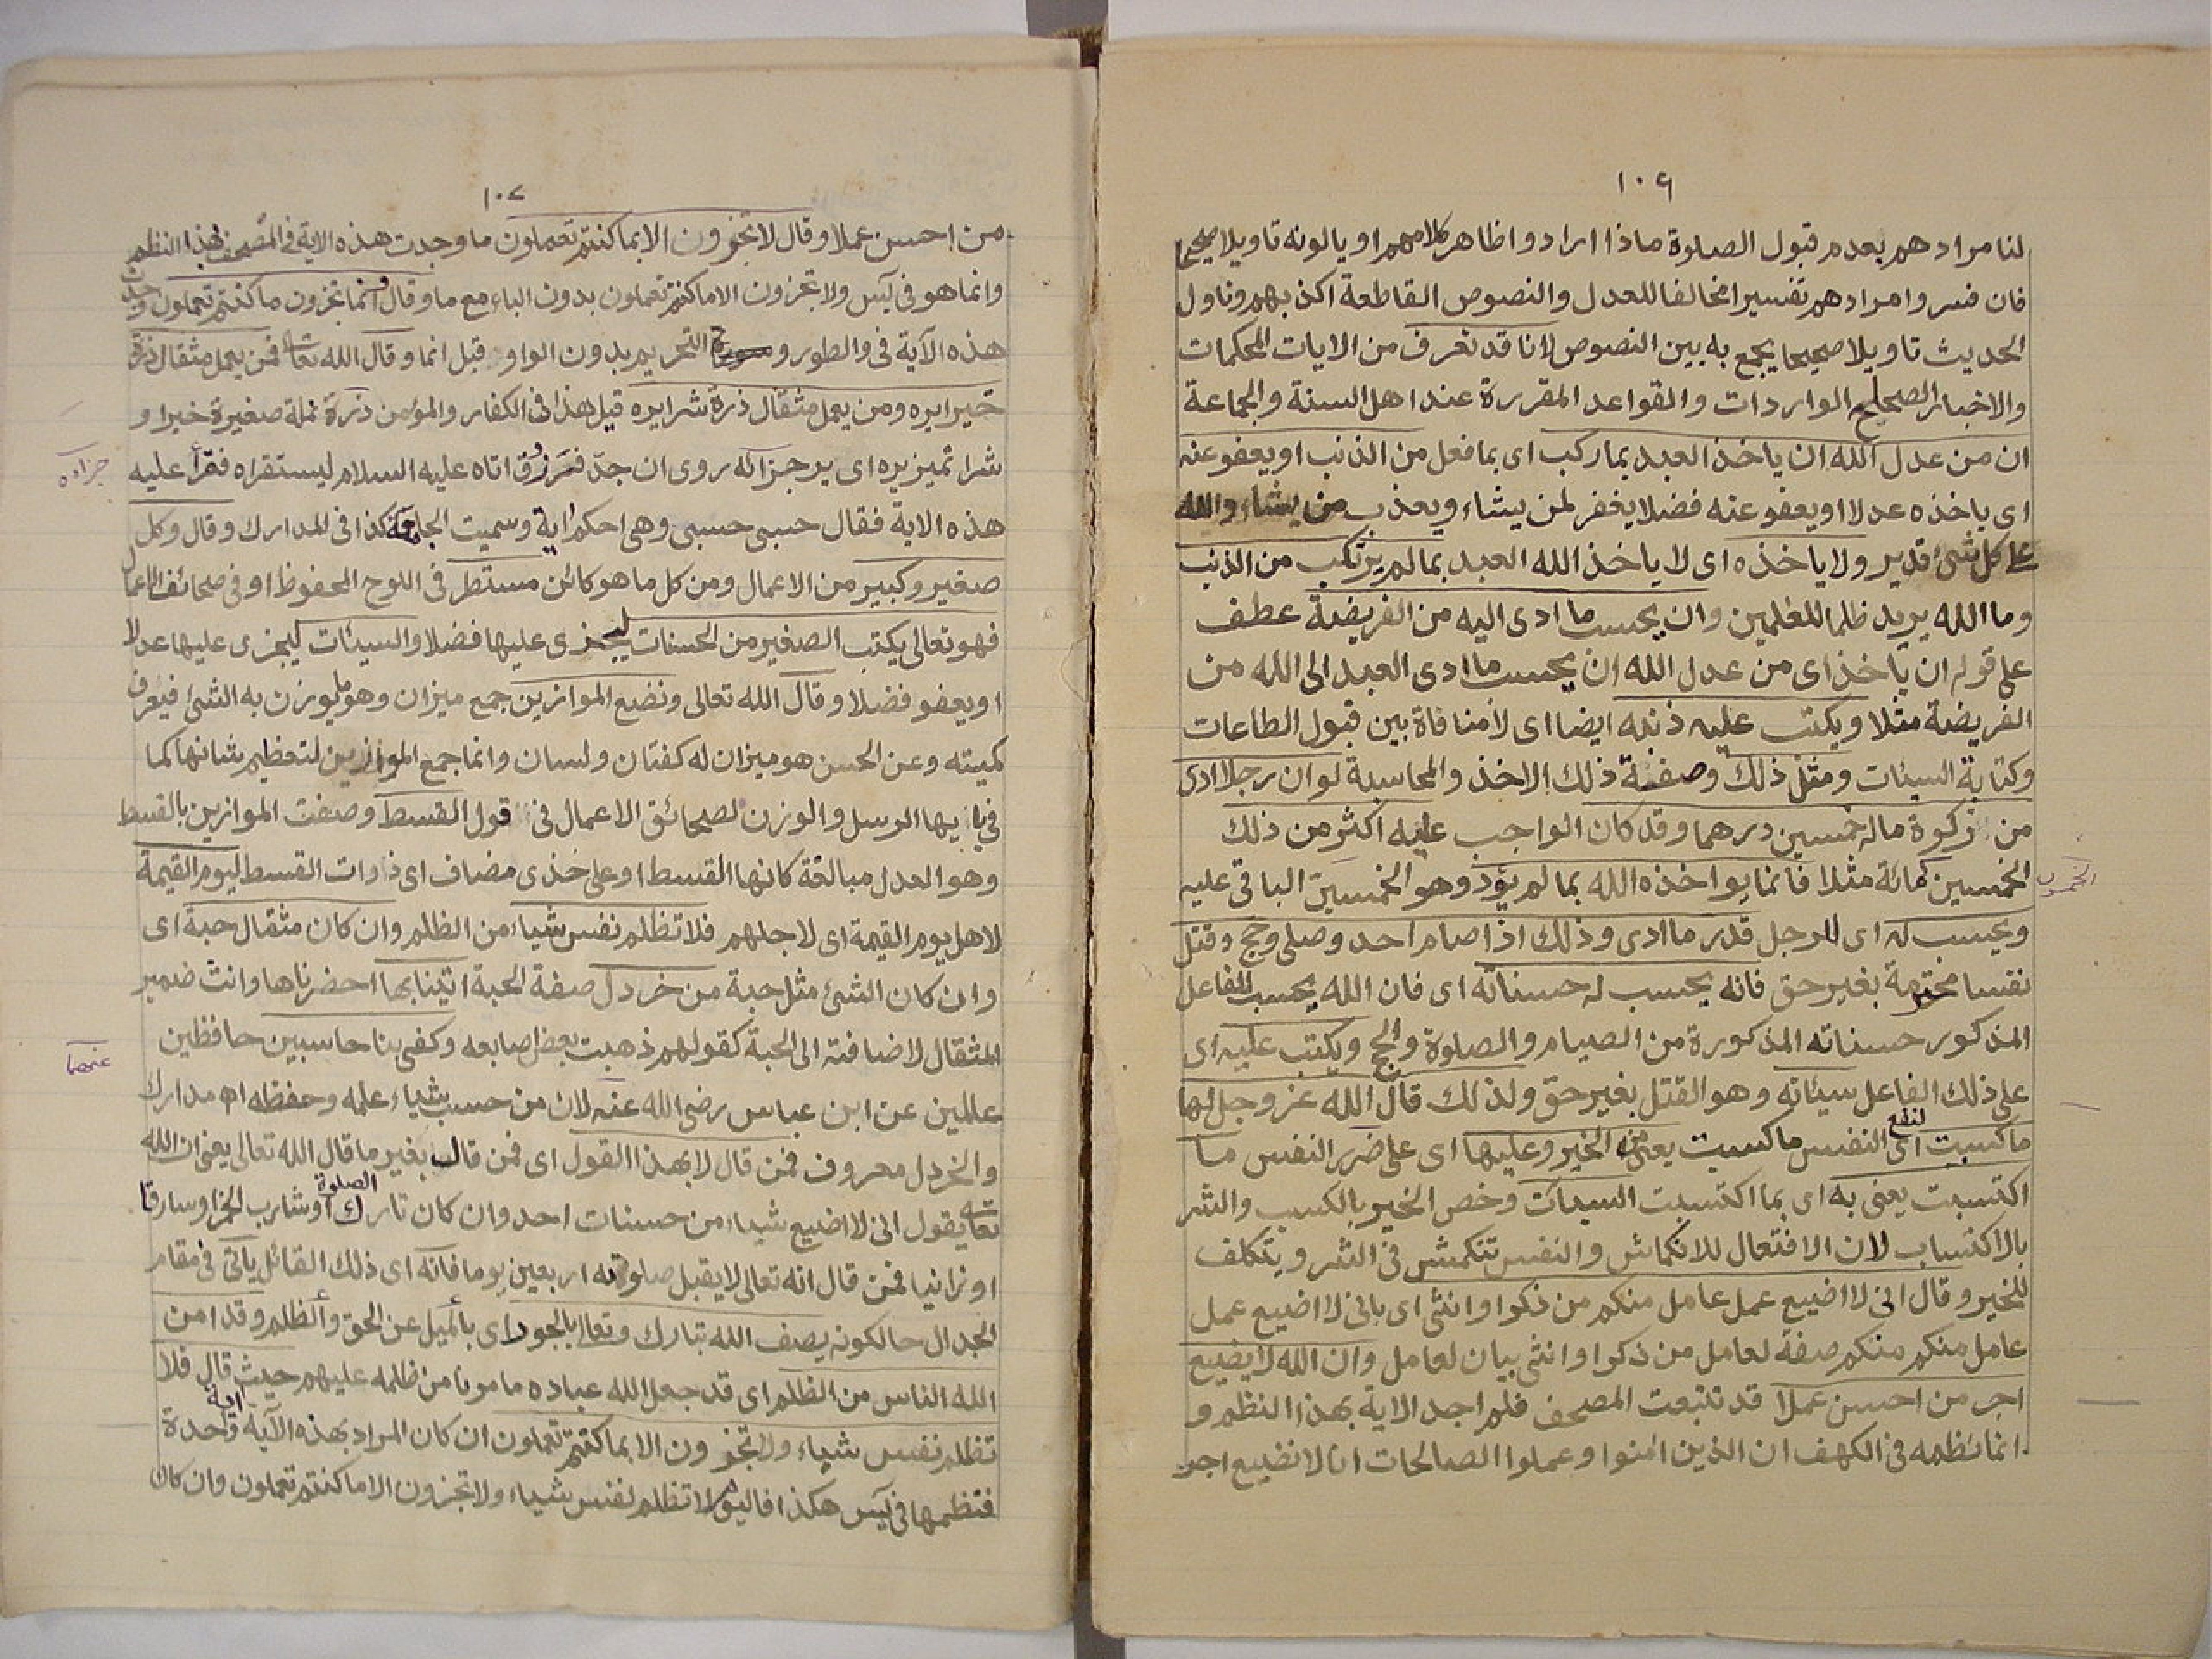 ١٠٦
لنا مرادهم بعدم قبول الصلوة ماذا ارادوا ظاهر كلامهم او يالونه تاويلا صحيحا
فان فسروا مرادهم تفسيرا مخالفا للعدل والنصوص القاطعة اكذبهم وناول
الحديث تاويلا صحيحا يجمع به بين النصوص لانا قد نعرف من الايات المحكمات
والاخبار الصحاح الواردات والقواعد المقررة عند اهل السنة والجماعة
ان من عدل الله ان ياخذ العبد بما ركب اى بما فعل من الذنب او يعفو عنه
اى ياخذه عدلا او يعفو عنه فضلا يغفر لمن يشاء ويعذب من يشاء والله
على كل شئ قدير ولا ياخذه اى لا ياخذ الله العبد بما لم يرتكب من الذنب
وما الله يريد ظلما للعلمين وان يحسب ما ادى اليه من الفريضة عطف
على قوله ان ياخذ اى من عدل الله ان يحسب ما ادى العبد الى الله من
الفريضة مثلا ويكتب عليه ذنبه ايضا اى لا منافاة بين قبول الطاعات
وكتابة السيئات ومثل ذلك وصفة ذلك الاخذ والمحاسبة لو ان رجلا ادى
من زكوة ماله خمسين درهما وقد كان الواجب عليه اكثر من ذلك
الخمسين كمائة مثلا فانما يواخذه الله بما لم يؤد وهو الخمسين الباقى عليه
الخمسون
ويحسب له اى للرجل قدر ما ادى وذلك اذا صام احد وصلى وحج وقتل
نفسا محترمة بغير حق فانه يحسب له حسناته اى فان الله يحسب للفاعل
المذكور حسناته المذكورة من الصيام والصلوة والحج ويكتب عليه اى
على ذلك الفاعل سيئاته وهو القتل بغير حق ولذلك قال الله عز وجل لها
ما كسبت اى لنفع النفس ما كسبت يعنى من الخير وعليها اى على ضرر النفس ما
اكتسبت يعنى به اى بما اكتسبت السيات وخص الخير بالكسب والشر
بالاكتساب لان الافتعال للانكماش والنفس تنكمش فى الشر ويتكلف
للخير وقال انى لا اضيع عمل عامل منكم من ذكر او انثى اى بانى لا اضيع عمل
عامل منكم منكم صفة لعامل من ذكر او انثى بيان لعامل وان الله لا يضيع
اجر من احسن عملا قد تتبعت المصحف فلم اجد الاية بهذا النظم و
انما نظمه فى الكهف ان الذين امنوا وعملوا الصالحات انا لا نضيع اجر
١٠٧
من احسن عملا وقال لا تجزون الا بما كنتم تعملون ما وجدت هذه الاية فى المصحف بهذا النظم
وانما هو فى يس ولا تجزون الا ما كنتم تعملون بدون الباء مع ما وقال وانما تجزون ما كنتم تعملون وجدت
هذه الآية فى والطور و التحريم بدون الواو قبل انما وقال الله تعالى فمن يعمل مثقال ذرة
خيرا يره ومن يعمل مثقال ذرة شرا يره قيل هذا فى الكفار والمؤمن ذرة نملة صغيرة خيرا و
شرا تميز يره اى ير جزائه روى ان جد فرزدق اتاه عليه السلام ليستقراه فقرأ عليه
جزاءه
هذه الاية فقال حسبى حسبى وهى احكم اية وسميت الجامعة كذا فى المدارك وقال وكل
صغير وكبير من الاعمال ومن كل ما هو كائن مستطر فى اللوح المحفوظ او فى صحائف الاعمال
فهو تعالى يكتب الصغير من الحسنات ليجزى عليها فضلا والسيئات ليجزى عليها عدلا
او يعفو فضلا وقال الله تعالى ونضع الموازين جمع ميزان وهو ما يوزن به الشئ فيعرف
كميته وعن الحسن هو ميزان له كفتان ولسان وانما جمع الموازين لتعظيم شانها كما
فى يا ايها الرسل والوزن لصحائف الاعمال فى قول القسط وصفت الموازين بالقسط
وهو العدل مبالغة كانها القسط او على حذف مضاف اى ذوات القسط ليوم القيمة
لاهل يوم القيمة اى لاجلهم فلا تظلم نفس شياء من الظلم وان كان مثقال حبة اى
وان كان الشئ مثل حبة من خردل صفة الحبة اتينا بها احضرناها وانث ضمير
المثقال لاضافته الى الحبة كقولهم ذهبت بعض اصابعه وكفى بنا حاسبين حافظين
عنهما
عالمين عن ابن عباس رضى الله عنه لان من حسب شياء علمه وحفظه اه مدارك
والخردل معروف فمن قال لا بهذا القول اى فمن قال بغير ما قال الله تعالى يعنى ان الله
تعالى يقول انى لا اضيع شياء من حسنات احد وان كان تارك الصلوة او شارب الخمر او سارقا
او زانيا فمن قال انه تعالى لا يقبل صلوته اربعين يوما فانه اى ذلك القائل ياتى فى مقام
الجدال حالكونه يصف الله تبارك وتعالى بالجور اى بالميل عن الحق والظلم وقد امن
الله الناس من الظلم اى قد جعل الله عباده مامونا من ظلمه عليهم حيث قال فلا
تظلم نفس شياء ولا تجزون الا بما كنتم تعملون ان كان المراد بهذه الآية اية واحدة
فنظمها فى يس هكذا فاليوم لا تظلم نفس شياء ولا تجزون الا ما كنتم تعملون وان كان